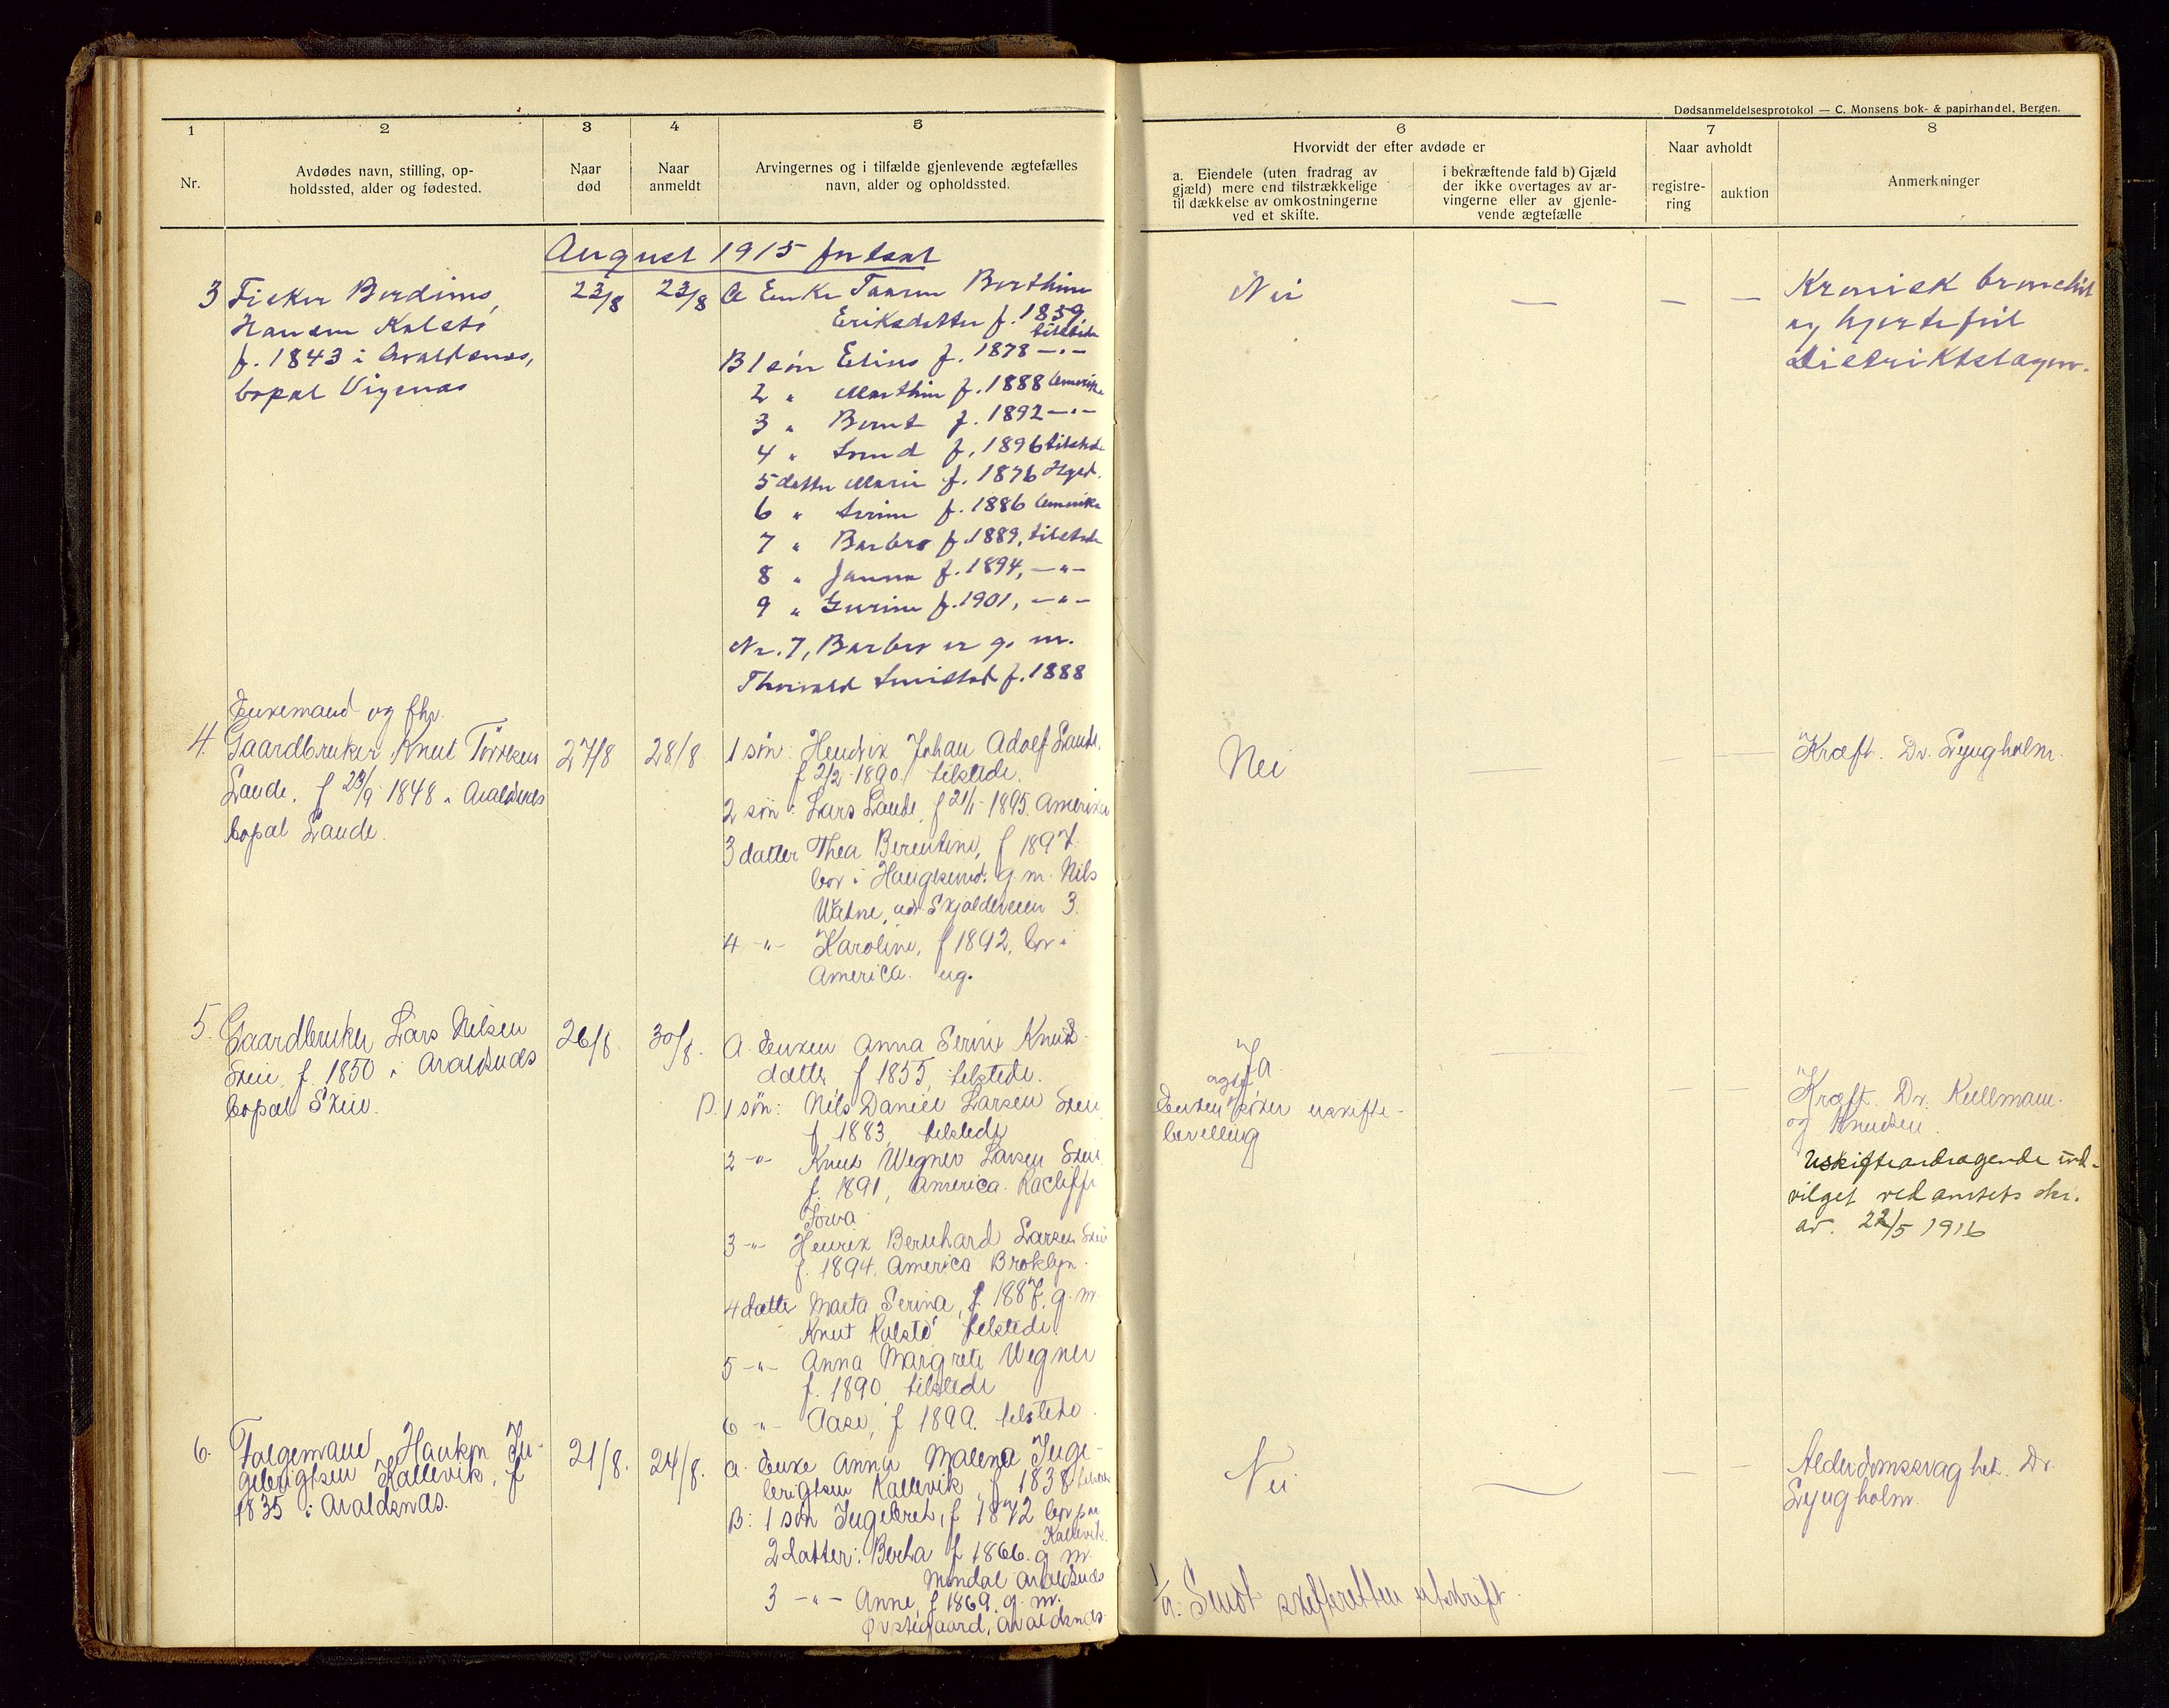 Dødsanmeldelsesprotokol — C. Monsens bok- & papirhandel, Bergen.
1 2 3 4 5 6 7 8
Nr.
Avdødes navn, stilling, op-
holdssted, alder og fødested.
Naar
død
Naar
anmeldt
Arvingernes og i tilfælde gjenlevende ægtefælles
navn, alder og opholdssted.
Hvorvidt der efter avdøde er
a. Eiendele (uten fradrag av
gjæld) mere end tilstrækkelige
til dækkelse av omkostningerne
ved et skifte.
i bekræftende fald b) Gjæld
der ikke overtages av ar-
vingerne eller av gjenle-
vende ægtefælle
Naar avholdt
registre-
ring
auktion
Anmerkninger
August 1915 fortsat
3 Fisker Berdines
Hansen Kalstø
f. 1843 i Avaldsnes,
bopæl Vignæs
23/8 23/8
A Enke Taaren Berthine
Eriksdatter f. 1859
tilstede
B 1 søn Elius f. 1878 —"—
2 " Marthin f. 1888 Amerika
3 " Bernt f. 1892 —"—
4 " f. 1896 tilstede
5 datter Marie f. 1876 Hgsd.
6 " f. 1886 Amerika
7 " Barbro f. 1889, tilstede
8 " Janna f. 1894, —"—
9 " Gurine f. 1901, —"—
Nr. 7, Barbro er g. m.
Thorvald f. 1888
Nei — — —
Kronisk bronchit
og hjertefeil
Distriktslægen.
Enkemand og fhv.
4. Gaardbruker Knut Tørresen
Lande, f 23/9 1848 i Avaldsnes
bopæl Lande.
27/8 28/8
1 søn: Hendrik Johan Adolf Lande,
f 2/2 1890. tilstede.
2 søn: Lars Lande, f 21/1 1895. Amerika
3 datter Thea Berentine, f 1897.
bor i Haugesund. g. m. Nils
Watne, adr Skjoldeveien 3.
4 -"- Karoline, f 1892, bor i
America. ug.
Nei — — —
Kræft. Dr. Lyngholm.
5. Gaardbruker Lars Nilsen
Skeie, f. 1850 i Avaldsnes
bopæl Skeie.
26/8 30/8.
A. Enken Anna Serine Knuds
datter f 1855, tilstede.
B. 1 søn: Nils Daniel Larsen Skeie
f 1883, tilstede
2 -"- Knut Wegner Larsen Skeie
f. 1891, America. Racliffe
Jowa
3 -"- Henrik Bernhard Larsen Skeie
f. 1894. America Broklyn.
4 datter Marta Serina, f. 1887, g. m.
Knut Kalstø tilstede.
5 -"- Anna Margrete Wegner
f. 1890 tilstede
6 -"- Aase, f 1899. tilstede.
Ja
agter
Enken søker uskifte-
bevilling
— — —
Kræft. Dr. Kullmann
og Knudsen.
Uskifteandragende ind-
vilget ved amtets skr.
av. 22/5 1916
6. Folgemand Haakon In-
gebrigtsen Kallevik, f
1835 i Avaldsnes.
21/8. 24/8.
A. Enke Anna Malena Inge-
brigtsen Kallevik f 1838 tilstede
B: 1 søn Ingebret, f 1872 bor paa
Kallevik.
2 datter: Berta f 1866. g m.
Mondal Avaldsnes
3 -"- Anne, f 1869. g. m.
Øvstegaard, Avaldsnes.
Nei — — —
Alderdomssvaghet. Dr.
Lyngholm.
1/9. Sendt skifteretten utskrift.